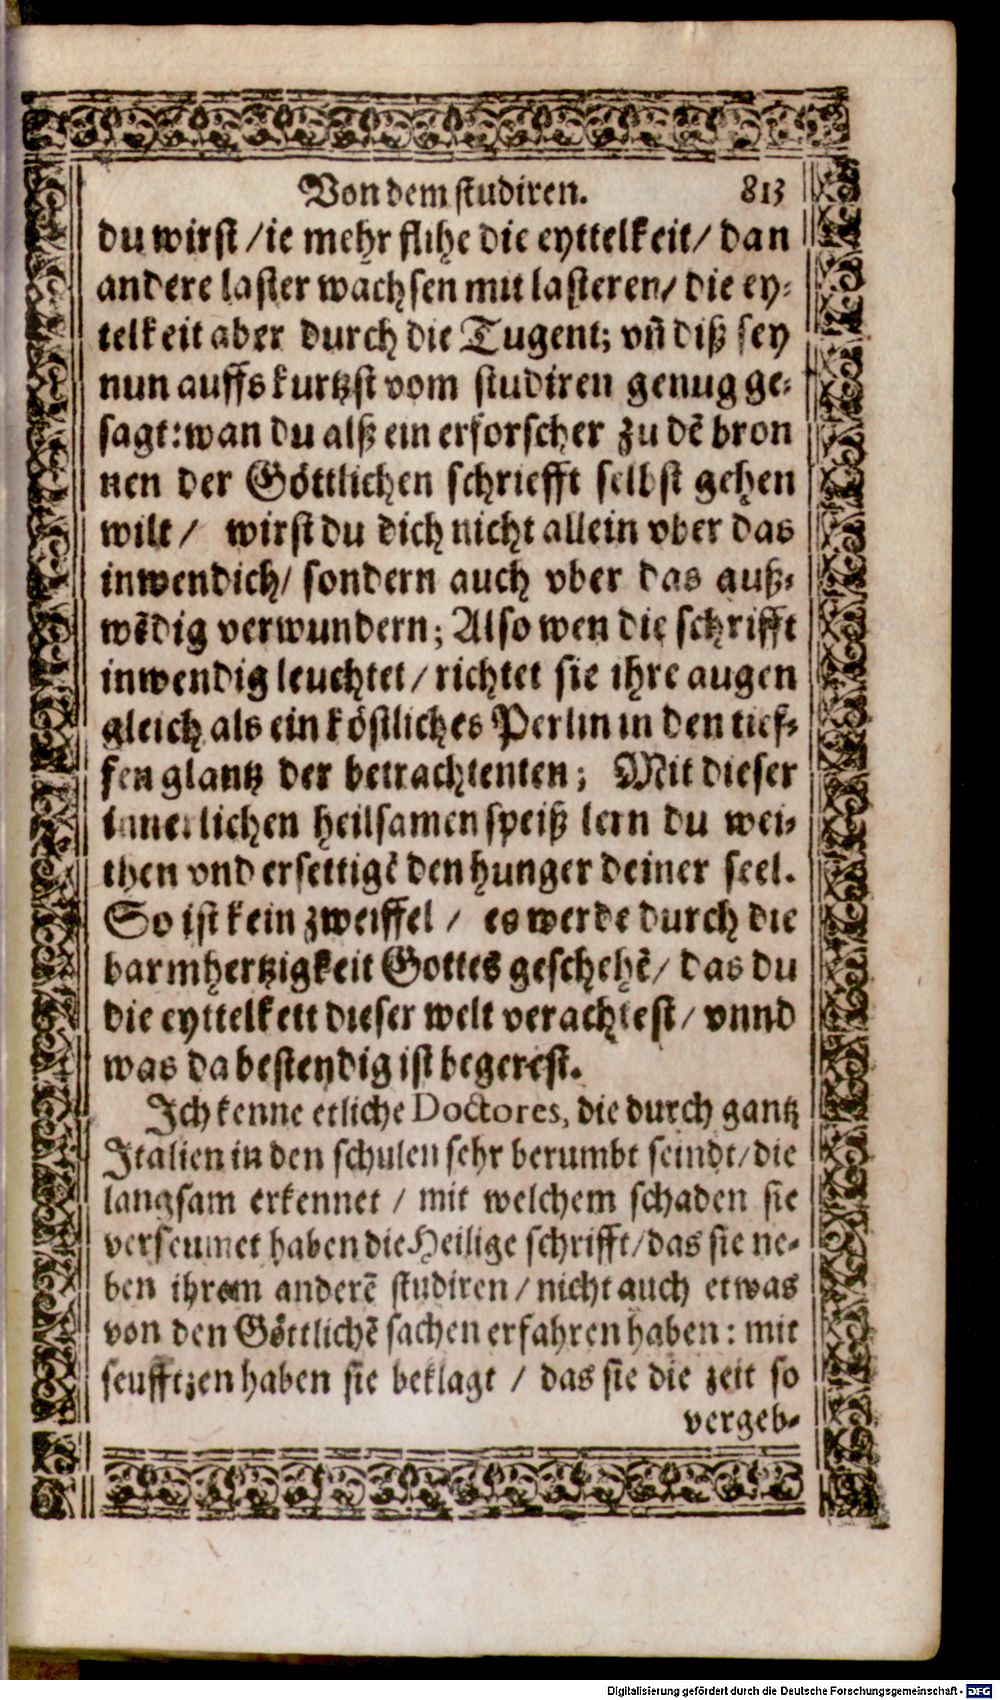 Von dem studiren. 813
du wirst / ie mehr flihe die eyttelkeit / dan
andere laster wachsen mit lasteren / die ey-
telkeit aber durch die Tugent; vñ diß sey
nun auffs kurtzst vom studiren genug ge-
sagt: wan du alß ein erforscher zu dẽ bron
nen der Göttlichen schriefft selbst gehen
wilt / wirst du dich nicht allein vber das
inwendich / sondern auch vber das auß-
wẽdig verwundern; Also wen die schrifft
inwendig leuchtet / richtet sie ihre augen
gleich als ein köstliches Perlin in den tief-
fen glantz der betrachtenten; Mit dieser
innerlichen heilsamen speiß lern du wei-
then vnd ersettigẽ den hunger deiner seel.
So ist kein zweiffel / es werde durch die
barmhertzigkeit Gottes geschehẽ / das du
die eyttelkett dieser welt verachtest / vnnd
was da bestendig ist begerest.
Ich kenne etliche Doctores, die durch gantz
Italien in den schulen sehr berumbt seindt / die
langsam erkennet / mit welchem schaden sie
verseumet haben die Heilige schrifft / das sie ne-
ben ihrem anderẽ studiren / nicht auch etwas
von den Göttlichẽ sachen erfahren haben: mit
seufftzen haben sie beklagt / das sie die zeit so
vergeb-
Digitalisierung gefördert durch die Deutsche Forschungsgemeinschaft - DFG